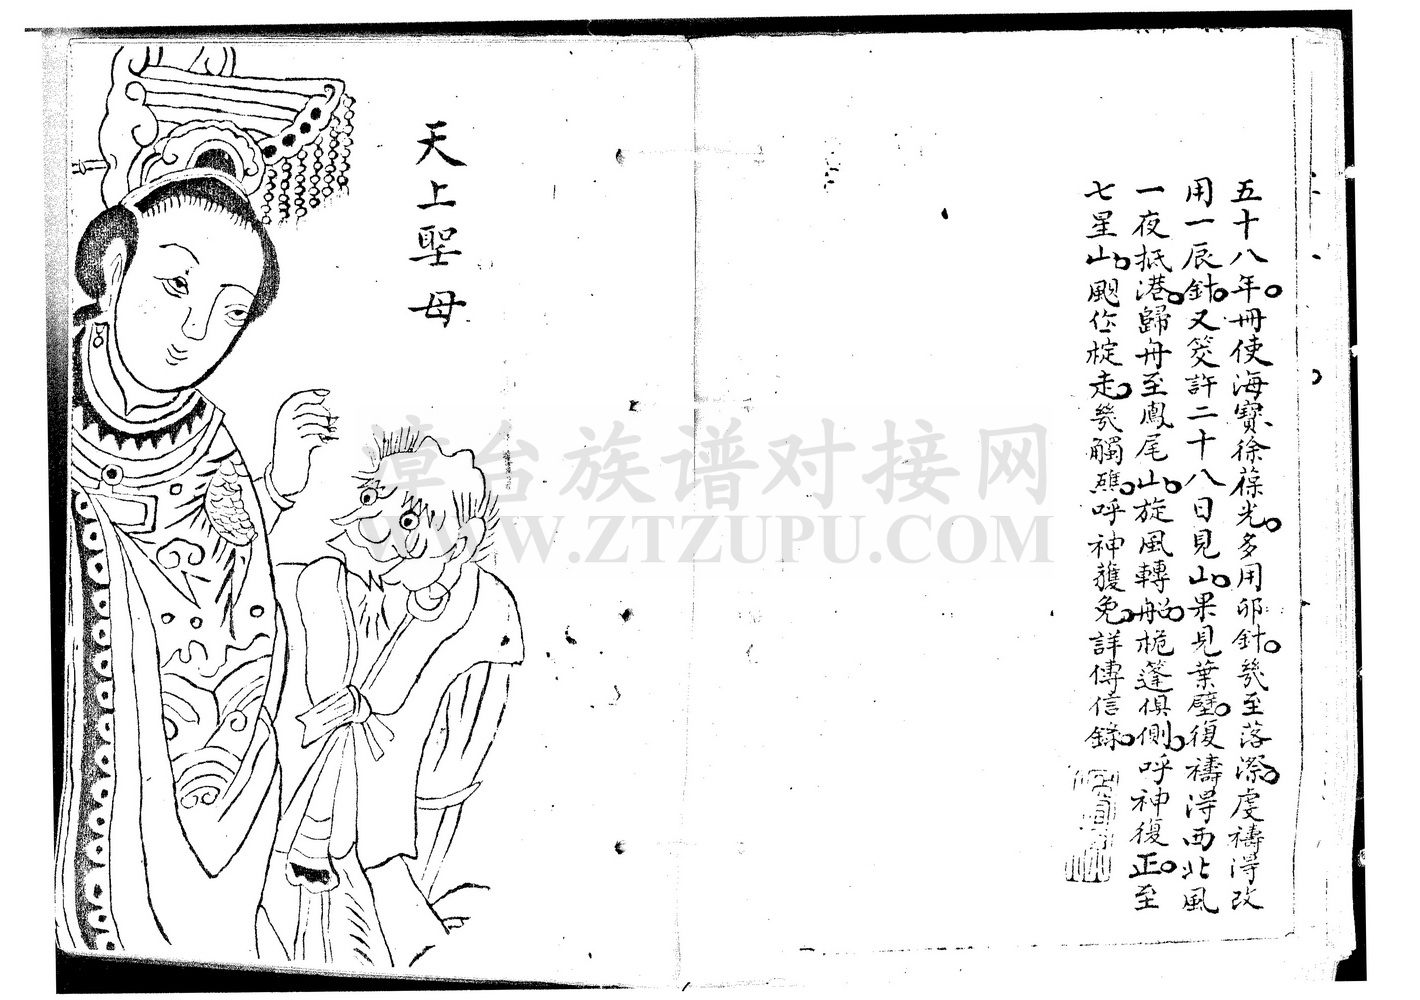 五十八年冊使海寶徐葆光多用卯針幾至落漈虔禱得改
用一辰針又筊許二十八日見山果見葉壁復禱得西北風
一夜抵港歸舟至鳳尾山旋風轉船桅蓬俱側呼神復正至
七星山颶作椗走幾觸礁呼神護免詳傳信錄
天上聖母
漳台族谱对接网
WWW.ZTZUPU.COM